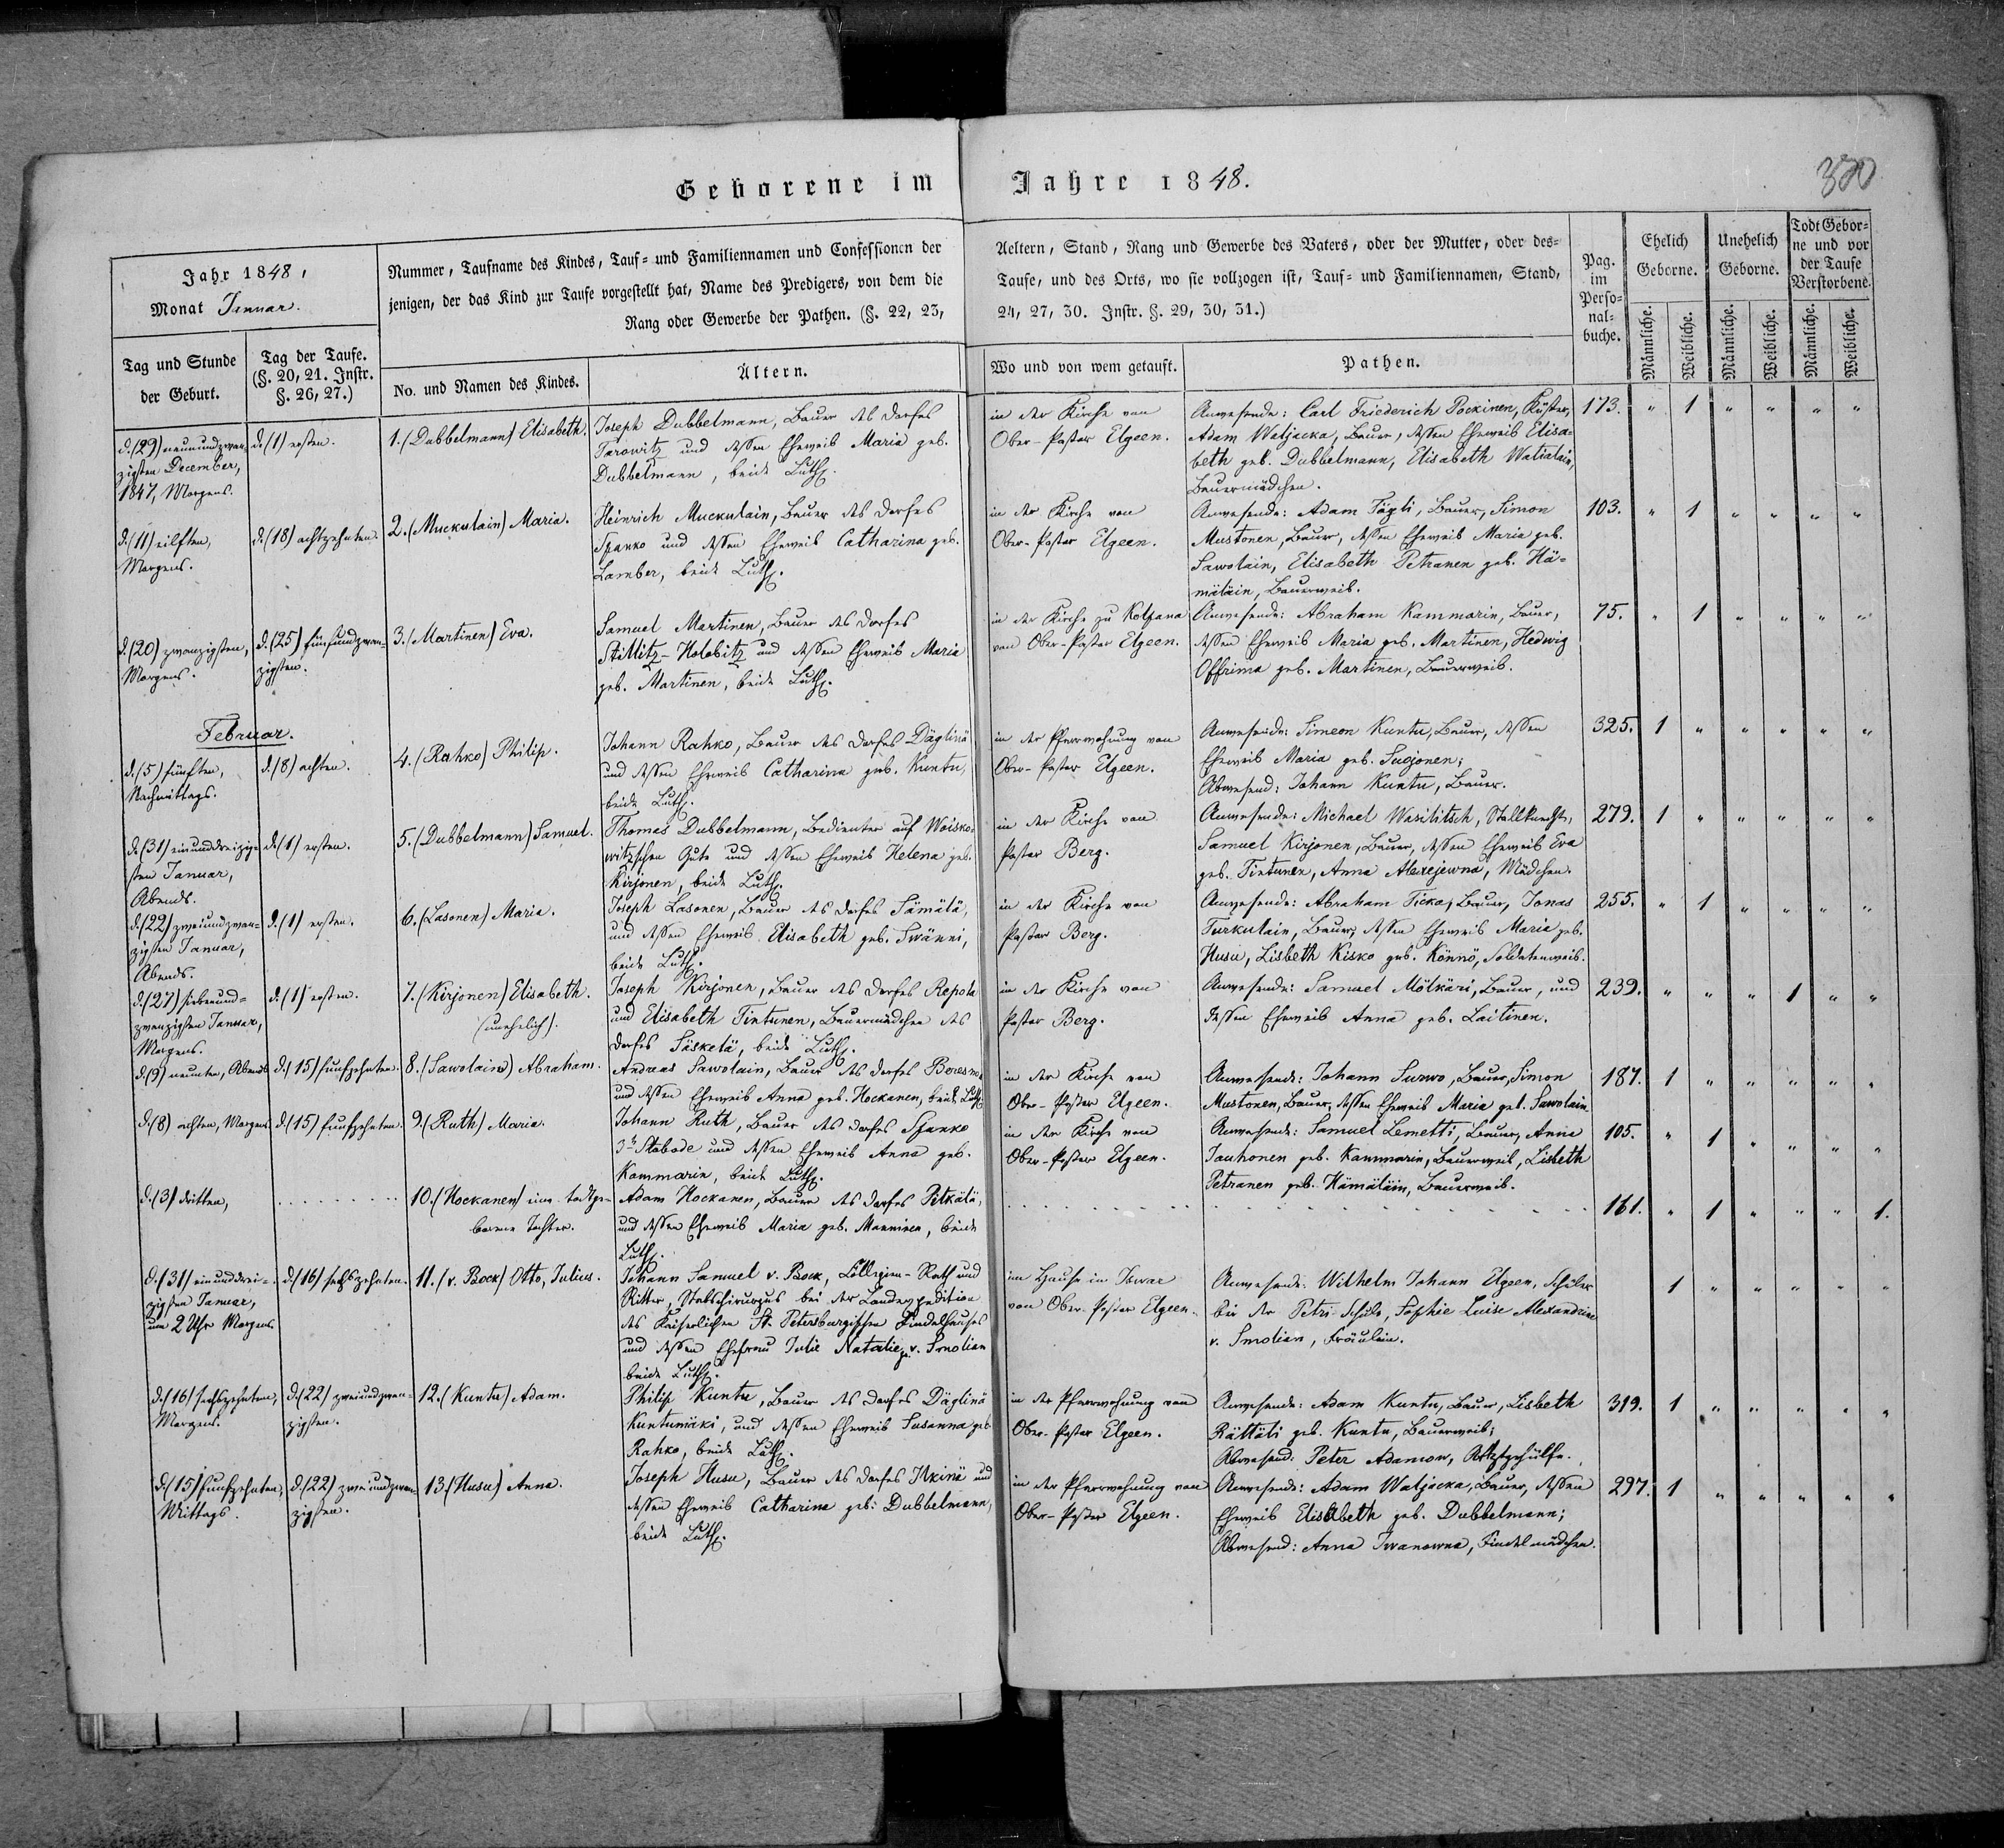 Geborene im Jahre 1848.
380
Jahr 1848,
Monat Januar.
Nummer, Taufname des Kindes, Tauf- und Familiennamen und Confessionen der Aeltern, Stand, Rang und Gewerbe des Vaters, oder der Mutter, oder des-
jenigen, der das Kind zur Taufe vorgestellt hat, Name des Predigers, von dem die Taufe, und des Orts, wo sie vollzogen ist, Tauf- und Familiennamen, Stand,
Rang oder Gewerbe der Pathen. (§. 22, 23, 24, 27, 30. Instr. §. 29, 30, 31.)
Pag.
im
Perso-
nal-
buche.
Ehelich
Geborne.
Unehelich
Geborne.
Todt Gebor-
ne und vor
der Taufe
Verstorbene.
Männliche.
Weibliche.
Männliche.
Weibliche.
Männliche.
Weibliche.
Tag und Stunde
der Geburt.
Tag der Taufe.
(§. 20, 21. Instr.
§. 26, 27.)
No. und Namen des Kindes.
Ältern.
Wo und von wem getauft.
Pathen.
d. (29) neunundzwan-
zigsten December,
1847, Morgens.
d. (1) ersten.
1. (Dubbelmann) Elisabeth.
Joseph Dubbelmann, Bauer des Dorfes
Tarowitz und dessen Eheweib Maria geb.
Dubbelmann, beide Luth.
in der Kirche von
Ober-Pastor Elgeen.
Anwesende: Carl Friederich Pockinen, Küster,
Adam Watjacka, Bauer, dessen Eheweib Elisa-
beth geb. Dubbelmann, Elisabeth Watialain,
Bauermädchen.
173. " 1 " " " "
d. (11) eilften,
Morgens.
d. (18) achtzehnten.
2. (Muckulain) Maria.
Heinrich Muckulain, Bauer des Dorfes
Spanko und dessen Eheweib Catharina geb.
Lamber, beide Luth.
in der Kirche von
Ober-Pastor Elgeen.
Anwesende: Adam Tägli, Bauer, Simon
Mustonen, Bauer, dessen Eheweib Maria geb.
Sawolain, Elisabeth Petranen geb. Hä-
mäläin, Bauerweib.
103. " 1 " " " "
d. (20) zwanzigsten,
Morgens.
d. (25) fünfundzwan-
zigsten.
3. (Martinen) Eva.
Samuel Martinen, Bauer des Dorfes
Stillitz-Holobitz und dessen Eheweib Maria
geb. Martinen, beide Luth.
in der Kirche zu Kolpana
von Ober-Pastor Elgeen.
Anwesende: Abraham Kammarin, Bauer,
dessen Eheweib Maria geb. Martinen, Hedwig
Offrima geb. Martinen, Bauerweib.
75. " 1 " " " "
Februar.
d. (5) fünften,
Nachmittags.
d. (8) achten.
4. (Rahko) Philip.
Johann Rahko, Bauer des Dorfes Däglinä
und dessen Eheweib Catharina geb. Kuntu,
beide Luth.
in der Pfarrwohnung von
Ober-Pastor Elgeen.
Anwesende: Simeon Kuntu, Bauer, dessen
Eheweib Maria geb. Sugonen;
Abwesend: Johann Kuntu, Bauer.
325. 1 " " " " "
d. (31) einunddreizig-
sten Januar,
Abends.
d. (1) ersten.
5. (Dubbelmann) Samuel.
Thomas Dubbelmann, Bedienter auf Woisko-
witzschen Gute und dessen Eheweib Helena geb.
Kirjonen, beide Luth.
in der Kirche von
Pastor Berg.
Anwesende: Michael Wasilitsch, Stallknecht,
Samuel Kirjonen, Bauer, dessen Eheweib Eva
geb. Tintunen, Anna Alexejewna, Mädchen.
279. 1 " " " " "
d. (22) zweiundzwan-
zigsten Januar,
Abends.
d. (1) ersten.
6. (Lasonen) Maria.
Joseph Lasonen, Bauer des Dorfes Sämälä,
und dessen Eheweib Elisabeth geb. Swänni,
beide Luth.
in der Kirche von
Pastor Berg.
Anwesende: Abraham Ticka, Bauer, Jonas
Turkulain, Bauer, dessen Eheweib Maria geb.
Husu, Lisbeth Kisko geb. Könnö, Soldatenweib.
255. " 1 " " " "
d. (27) siebenund-
zwanzigsten Januar,
Morgens.
d. (1) ersten.
7. (Kirjonen) Elisabeth.
(unehelich).
Joseph Kirjonen, Bauer des Dorfes Repola
und Elisabeth Tintunen, Bauermädchen des
Dorfes Säskelä, beide Luth.
in der Kirche von
Pastor Berg.
Anwesende: Samuel Mölkäri, Bauer, und
dessen Eheweib Anna geb. Laitinen.
239. " " " 1 " "
d. (9) neunten, Abends
d. (15) funfzehnten.
8. (Sawolain) Abraham.
Andreas Sawolain, Bauer des Dorfes Beresno
und dessen Eheweib Anna geb. Hockanen, beide Luth.
in der Kirche von
Ober-Pastor Elgeen.
Anwesende: Johann Surwo, Bauer, Simon
Mustonen, Bauer, dessen Eheweib Maria geb. Sawolain.
187. 1 " " " " "
d. (8) achten, Morgens
d. (15) funfzehnten.
9. (Ruth) Maria.
Johann Ruth, Bauer des Dorfes Spanko
3te Slobode und dessen Eheweib Anna geb.
Kammarin, beide Luth.
in der Kirche von
Ober-Pastor Elgeen.
Anwesende: Samuel Lemetti, Bauer, Anna
Tauhonen geb. Kammarin, Bauerweib, Lisbeth
Petranen geb. Hämäläin, Bauerweib.
105. " 1 " " " "
d. (3) dritten,
. . . . . . . .
10. (Hockanen) eine todtge-
borene Tochter.
Adam Hockanen, Bauer des Dorfes Pitkälä,
und dessen Eheweib Maria geb. Manninen, beide
Luth.
161. " 1 " " " 1.
d. (31) einunddrei-
zigsten Januar,
um 2 Uhr Morgens
d. (16) sechszehnten.
11. (v. Bock) Otto, Julius.
Johann Samuel v. Bock, Collegien-Rath und
Ritter, Stabschirurgus bei der Landexpedition
des Kaiserlichen St. Petersburgischen Findelhauses
und dessen Ehefrau Julie Natalie geb. v. Smolian
beide Luth.
im Hause in Iswar
von Ober-Pastor Elgeen.
Anwesende: Wilhelm Johann Elgeen, Schüler
bei der Petri-Schule, Sophie Luise Alexandrine
v. Smolian, Fräulein.
1 " " " " "
d. (16) sechszehnten,
Morgens.
d. (22) zweiundzwan-
zigsten.
12. (Kuntu) Adam.
Philip Kuntu, Bauer des Dorfes Däglinä
Kuntumäki, und dessen Eheweib Susanna geb
Rahko, beide Luth.
in der Pfarrwohnung von
Ober-Pastor Elgeen.
Anwesende: Adam Kuntu, Bauer, Lisbeth
Rättäli geb. Kuntu, Bauerweib;
Abwesend: Peter Adamow,
319. 1 " " " " "
d. (15) funfzehnten,
Mittags.
d. (22) zweiundzwan-
zigsten.
13. (Husu) Anna.
Joseph Husu, Bauer des Dorfes Ilkinä und
dessen Eheweib Catharina geb. Dubbelmann,
beide Luth.
in der Pfarrwohnung von
Ober-Pastor Elgeen.
Anwesende: Adam Watjacka, Bauer, dessen
Eheweib Elisabeth geb. Dubbelmann;
Abwesend: Anna Iwanowna, Findelmädchen.
297. 1 " " " " "